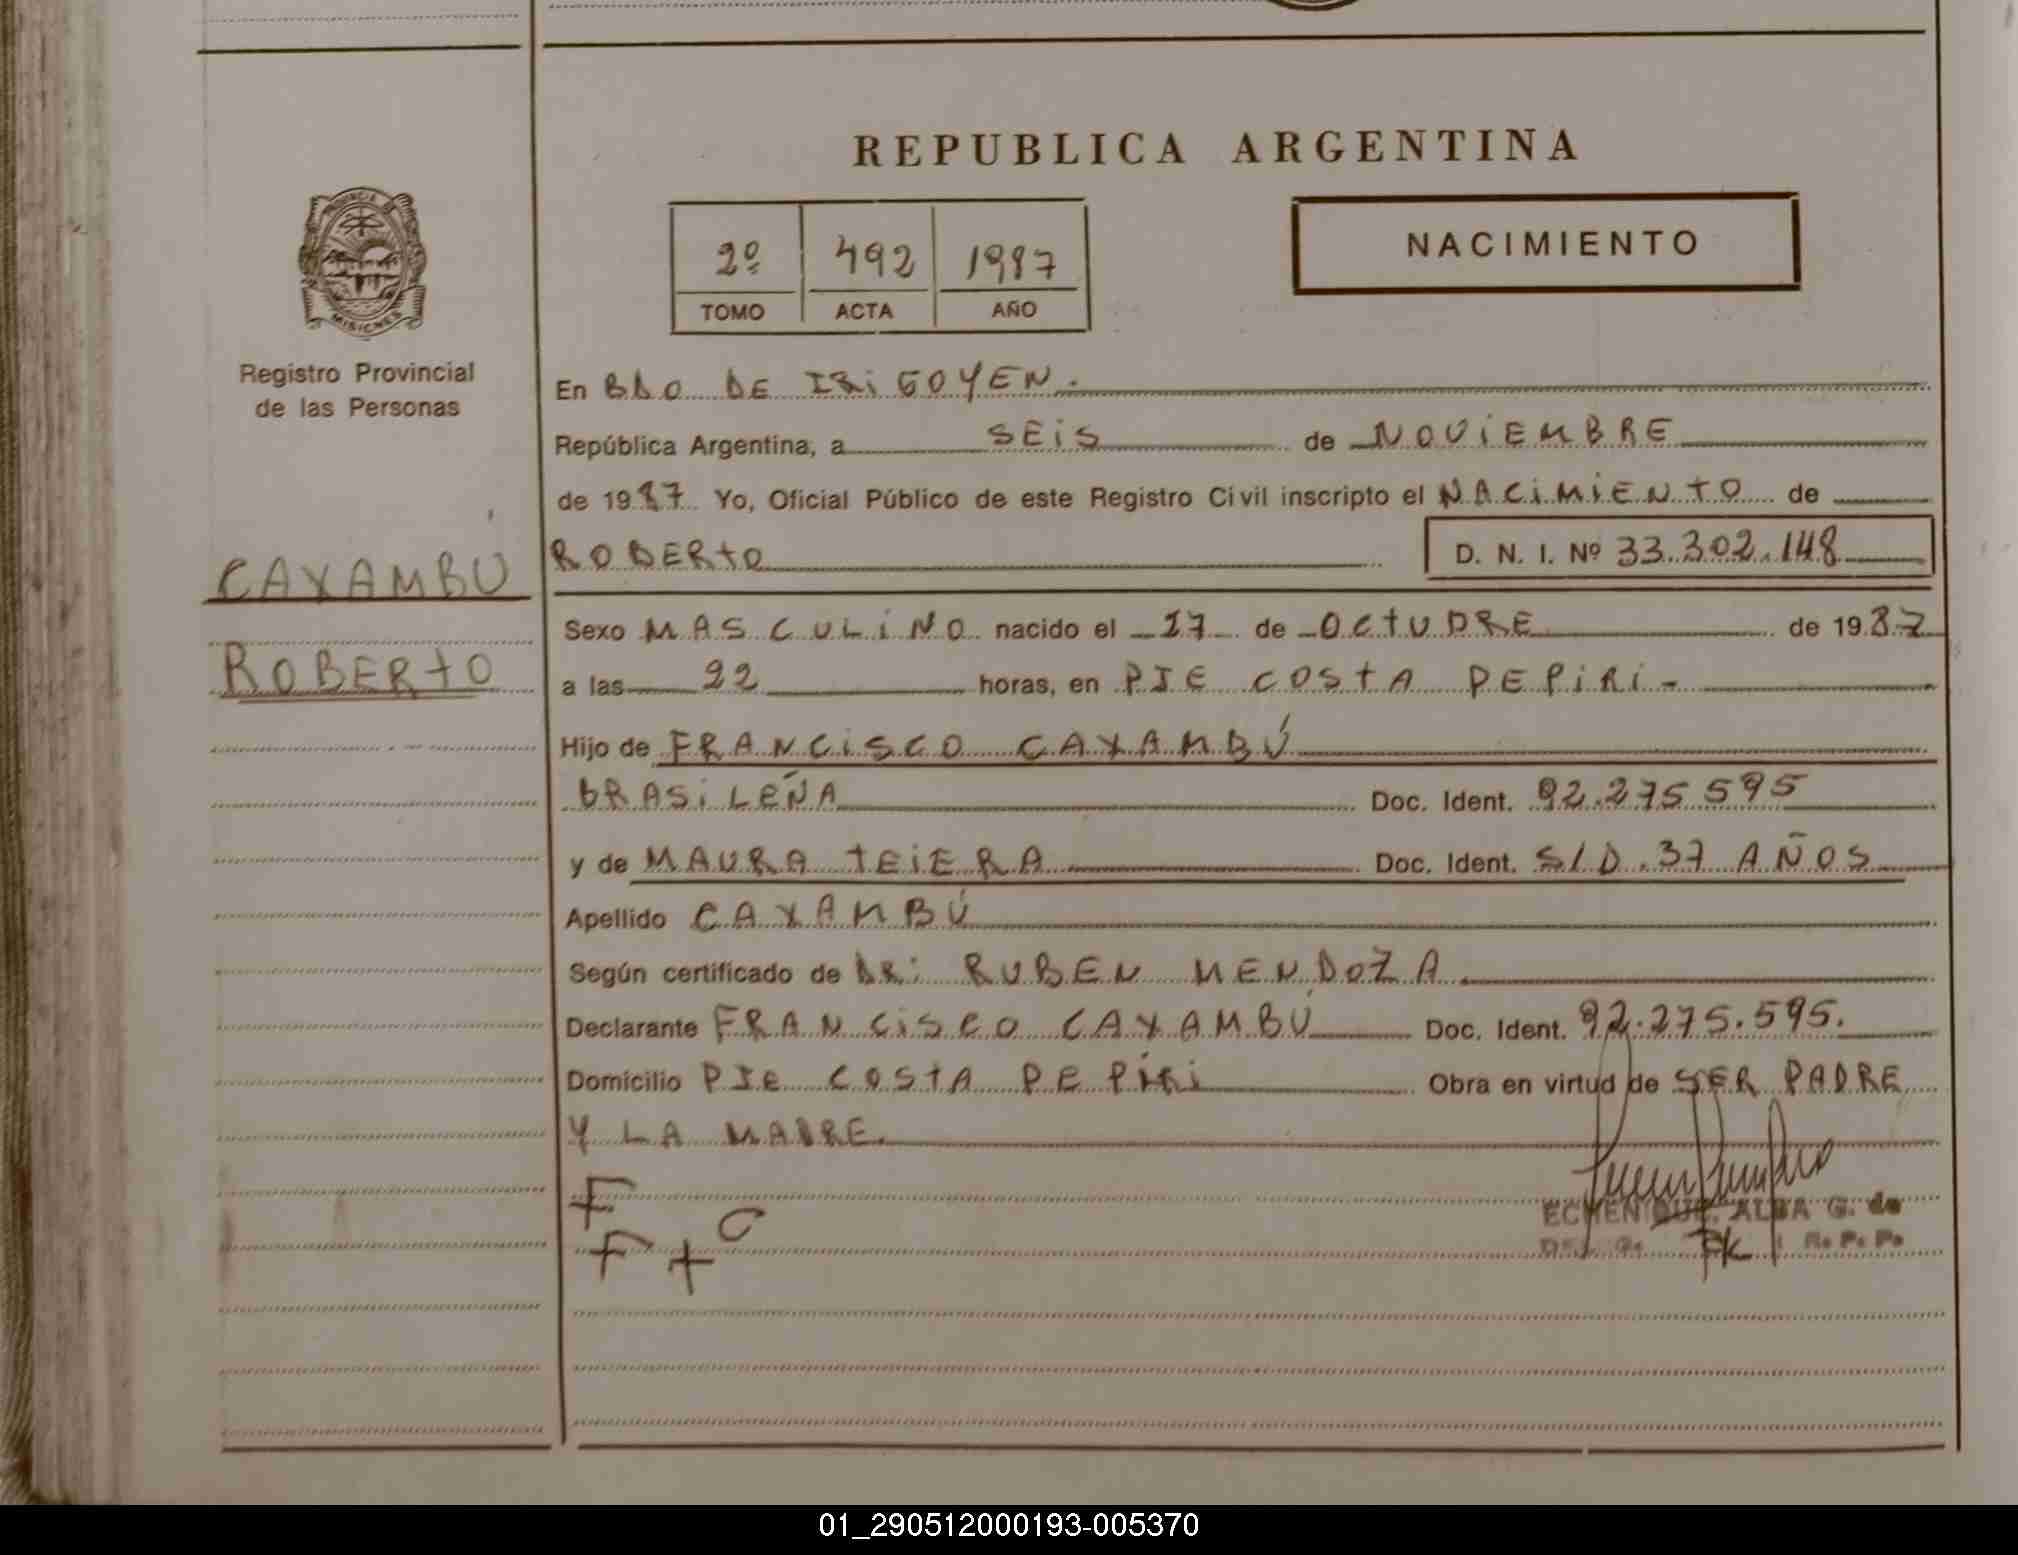 REPUBLICA ARGENTINA
PROVINCIA DE
MISIONES
Registro Provincial
de las Personas
2º 492 1987
TOMO ACTA AÑO
NACIMIENTO
En BDO DE IRiGOYEN.
República Argentina, a SEiS de NOViEMBRE
de 1987 Yo, Oficial Público de este Registro Civil inscripto el NACiMiENTO de
CAXAMBÚ
ROBERTO
ROBERTO D. N. I. Nº 33.302.148
Sexo MASCULiNO nacido el 17 de OCTUBRE de 1987
a las 22 horas, en PJE COSTA PEPiRi-
Hijo de FRANCiSCO CAXAMBÚ
BRASiLEÑA Doc. Ident. 92.275.595
y de MAURA TEiERA Doc. Ident. S/D.37 AÑOS
Apellido CAXAMBÚ
Según certificado de DR: RUBEN MENDOZA
Declarante FRANCiSCO CAXAMBÚ Doc. Ident. 92.275.595.
Domicilio PJE COSTA PEPiRi Obra en virtud de SER PADRE
Y LA MADRE.
F
F + C
ECHENIQUE, ALBA G. de
R. P. P.
01_290512000193-005370